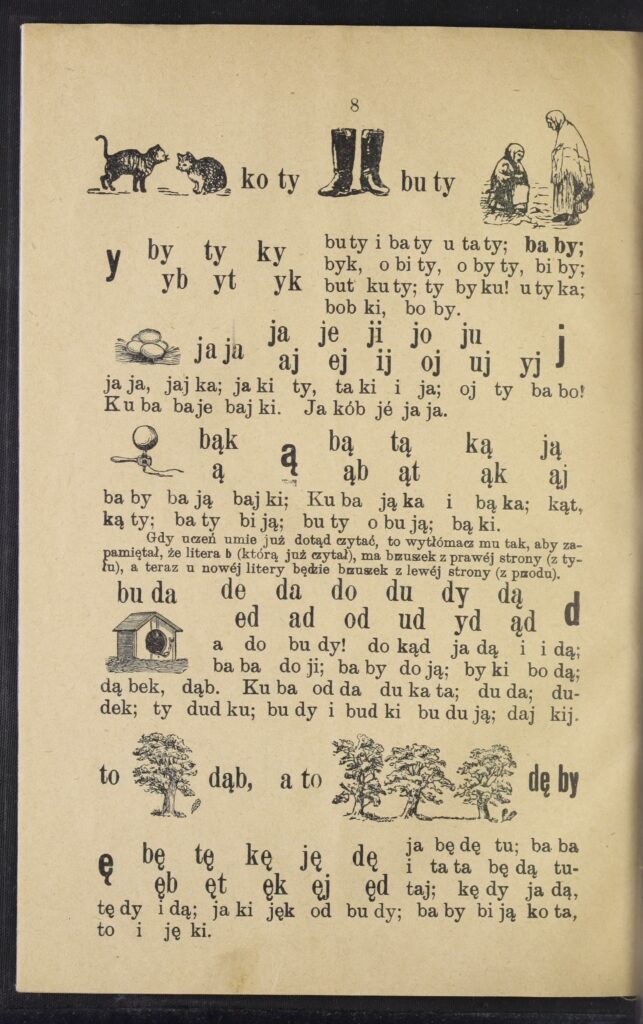 8
ko ty
bu ty
y by ty ky
yb yt yk
bu ty i ba ty u ta ty; ba by;
byk, o bi ty, o by ty, bi by;
but ku ty; ty by ku! u ty ka;
bob ki, bo by.
ja ja
ja je ji jo ju
aj ej ij oj uj yj j
ja ja, jaj ka; ja ki ty, ta ki i ja; oj ty ba bo!
Ku ba baje baj ki. Ja kób jé ja ja.
bąk ą bą tą ką ją
ą ąb ąt ąk ąj
ba by ba ją baj ki; Ku ba ją ka i bą ka; kąt,
ką ty; ba ty bi ją; bu ty o bu ją; bą ki.
Gdy uczeń umie już dotąd czytać, to wytłómacz mu tak, aby za-
pamiętał, że litera b (którą już czytał), ma brzuszek z prawéj strony (z ty-
łu), a teraz u nowéj litery będzie brzuszek z lewéj strony (z przodu).
bu da de da do du dy dą
ed ad od ud yd ąd d
a do bu dy! do kąd ja dą i i dą;
ba ba do ji; ba by do ją; by ki bo dą;
dą bek, dąb. Ku ba od da du ka ta; du da; du-
dek; ty dud ku; bu dy i bud ki bu du ją; daj kij.
to dąb, a to dę by
ę bę tę kę ję dę
ęb ęt ęk ęj ęd
ja bę dę tu; ba ba
i ta ta bę dą tu-
taj; kę dy ja dą,
tę dy i dą; ja ki jęk od bu dy; ba by bi ją ko ta,
to i ję ki.